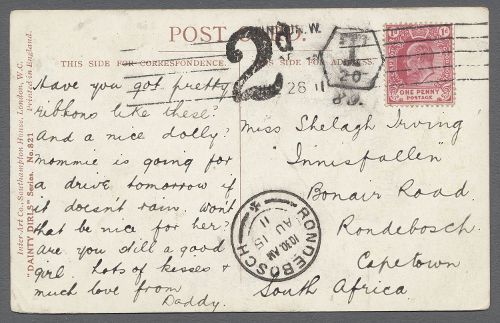 POST CARD.
THIS SIDE FOR CORRESPONDENCE.
THIS SIDE FOR ADDRESS.
Inter-Art Co., Southampton House, London, W.C.
"DAINTY DIRLS" Series. No. 821
Printed in England.
Have you got pretty
ribbons like these?
And a nice dolly?
Mommie is going for
a drive tomorrow if
it doesn't rain. Won't
that be nice for her?
Are you still a good
girl Lots of kisses &
much love from
Daddy.
2d
W.
28 11
T
20
ONE PENNY
POSTAGE
1d
1d
Miss Shelagh Irving
"Innisfallen"
Bonair Road
Rondebosch.
Capetown
South Africa
RONDEBOSCH
10 30 AM
AU 15
11